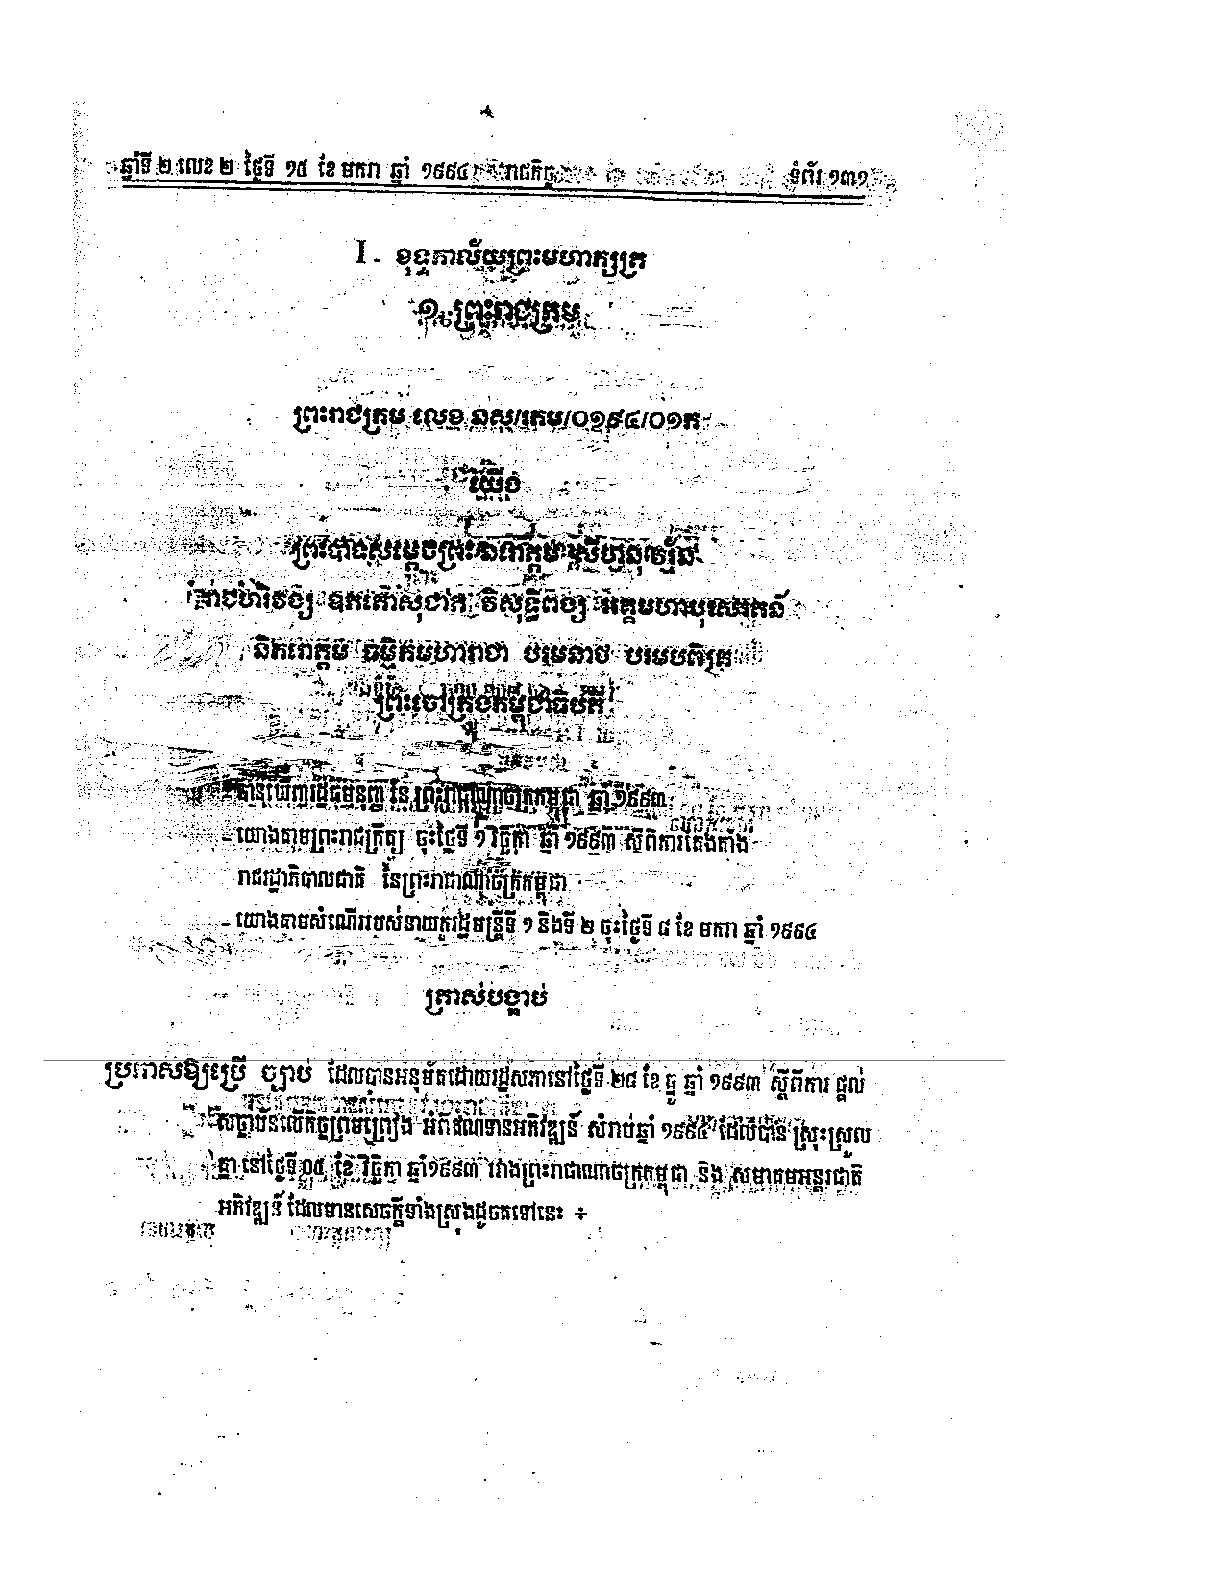 ឆ្នាំទី ២ លេខ ២ ថ្ងៃទី ១៥ ខែ មករា ឆ្នាំ ១៩៩៤ រាជកិច្ច ទំព័រ ១៣១
I - ខុទ្ទកាល័យព្រះមហាក្សត្រ
១. ព្រះរាជក្រម
ព្រះរាជក្រម លេខ នស/រកម/០១៩៤/០១ក
យើង
ព្រះបាទសម្តេចព្រះនរោត្តម សីហនុវរ្ម័ន
រាជហរិវង្ស ឧភតោសុជាត វិសុទ្ធិពង្ស អគ្គមហាបុរសរតន៍
និករោត្តម ធម្មិកមហារាជា បរមនាថ បរមបពិត្រ
ព្រះចៅក្រុងកម្ពុជាធិបតី
- បានឃើញរដ្ឋធម្មនុញ្ញ នៃ ព្រះរាជាណាចក្រកម្ពុជា ឆ្នាំ ១៩៩៣
- យោងតាមព្រះរាជក្រឹត្យ ចុះថ្ងៃទី ១ វិច្ឆិកា ឆ្នាំ ១៩៩៣ ស្តីពីការតែងតាំង
រាជរដ្ឋាភិបាលជាតិ នៃព្រះរាជាណាចក្រកម្ពុជា
- យោងតាមសំណើរបស់នាយករដ្ឋមន្ត្រីទី ១ និងទី ២ ចុះថ្ងៃទី ៨ ខែ មករា ឆ្នាំ ១៩៩៤
ត្រាស់បង្គាប់
ប្រកាសឱ្យប្រើ ច្បាប់ ដែលបានអនុម័តដោយរដ្ឋសភានៅថ្ងៃទី ២៨ ខែ ធ្នូ ឆ្នាំ ១៩៩៣ ស្តីពីការ ផ្តល់
សច្ចាប័នលើកិច្ចព្រមព្រៀង អំពីឥណទានអភិវឌ្ឍន៍ សំរាប់ឆ្នាំ ១៩៩៤ ដែលបាន ស្រុះស្រួល
គ្នា នៅថ្ងៃទី ០៥ ខែ វិច្ឆិកា ឆ្នាំ ១៩៩៣ រវាងព្រះរាជាណាចក្រកម្ពុជា និង សមាគមអន្តរជាតិ
អភិវឌ្ឍន៍ ដែលមានសេចក្តីទាំងស្រុងដូចតទៅនេះ ៖